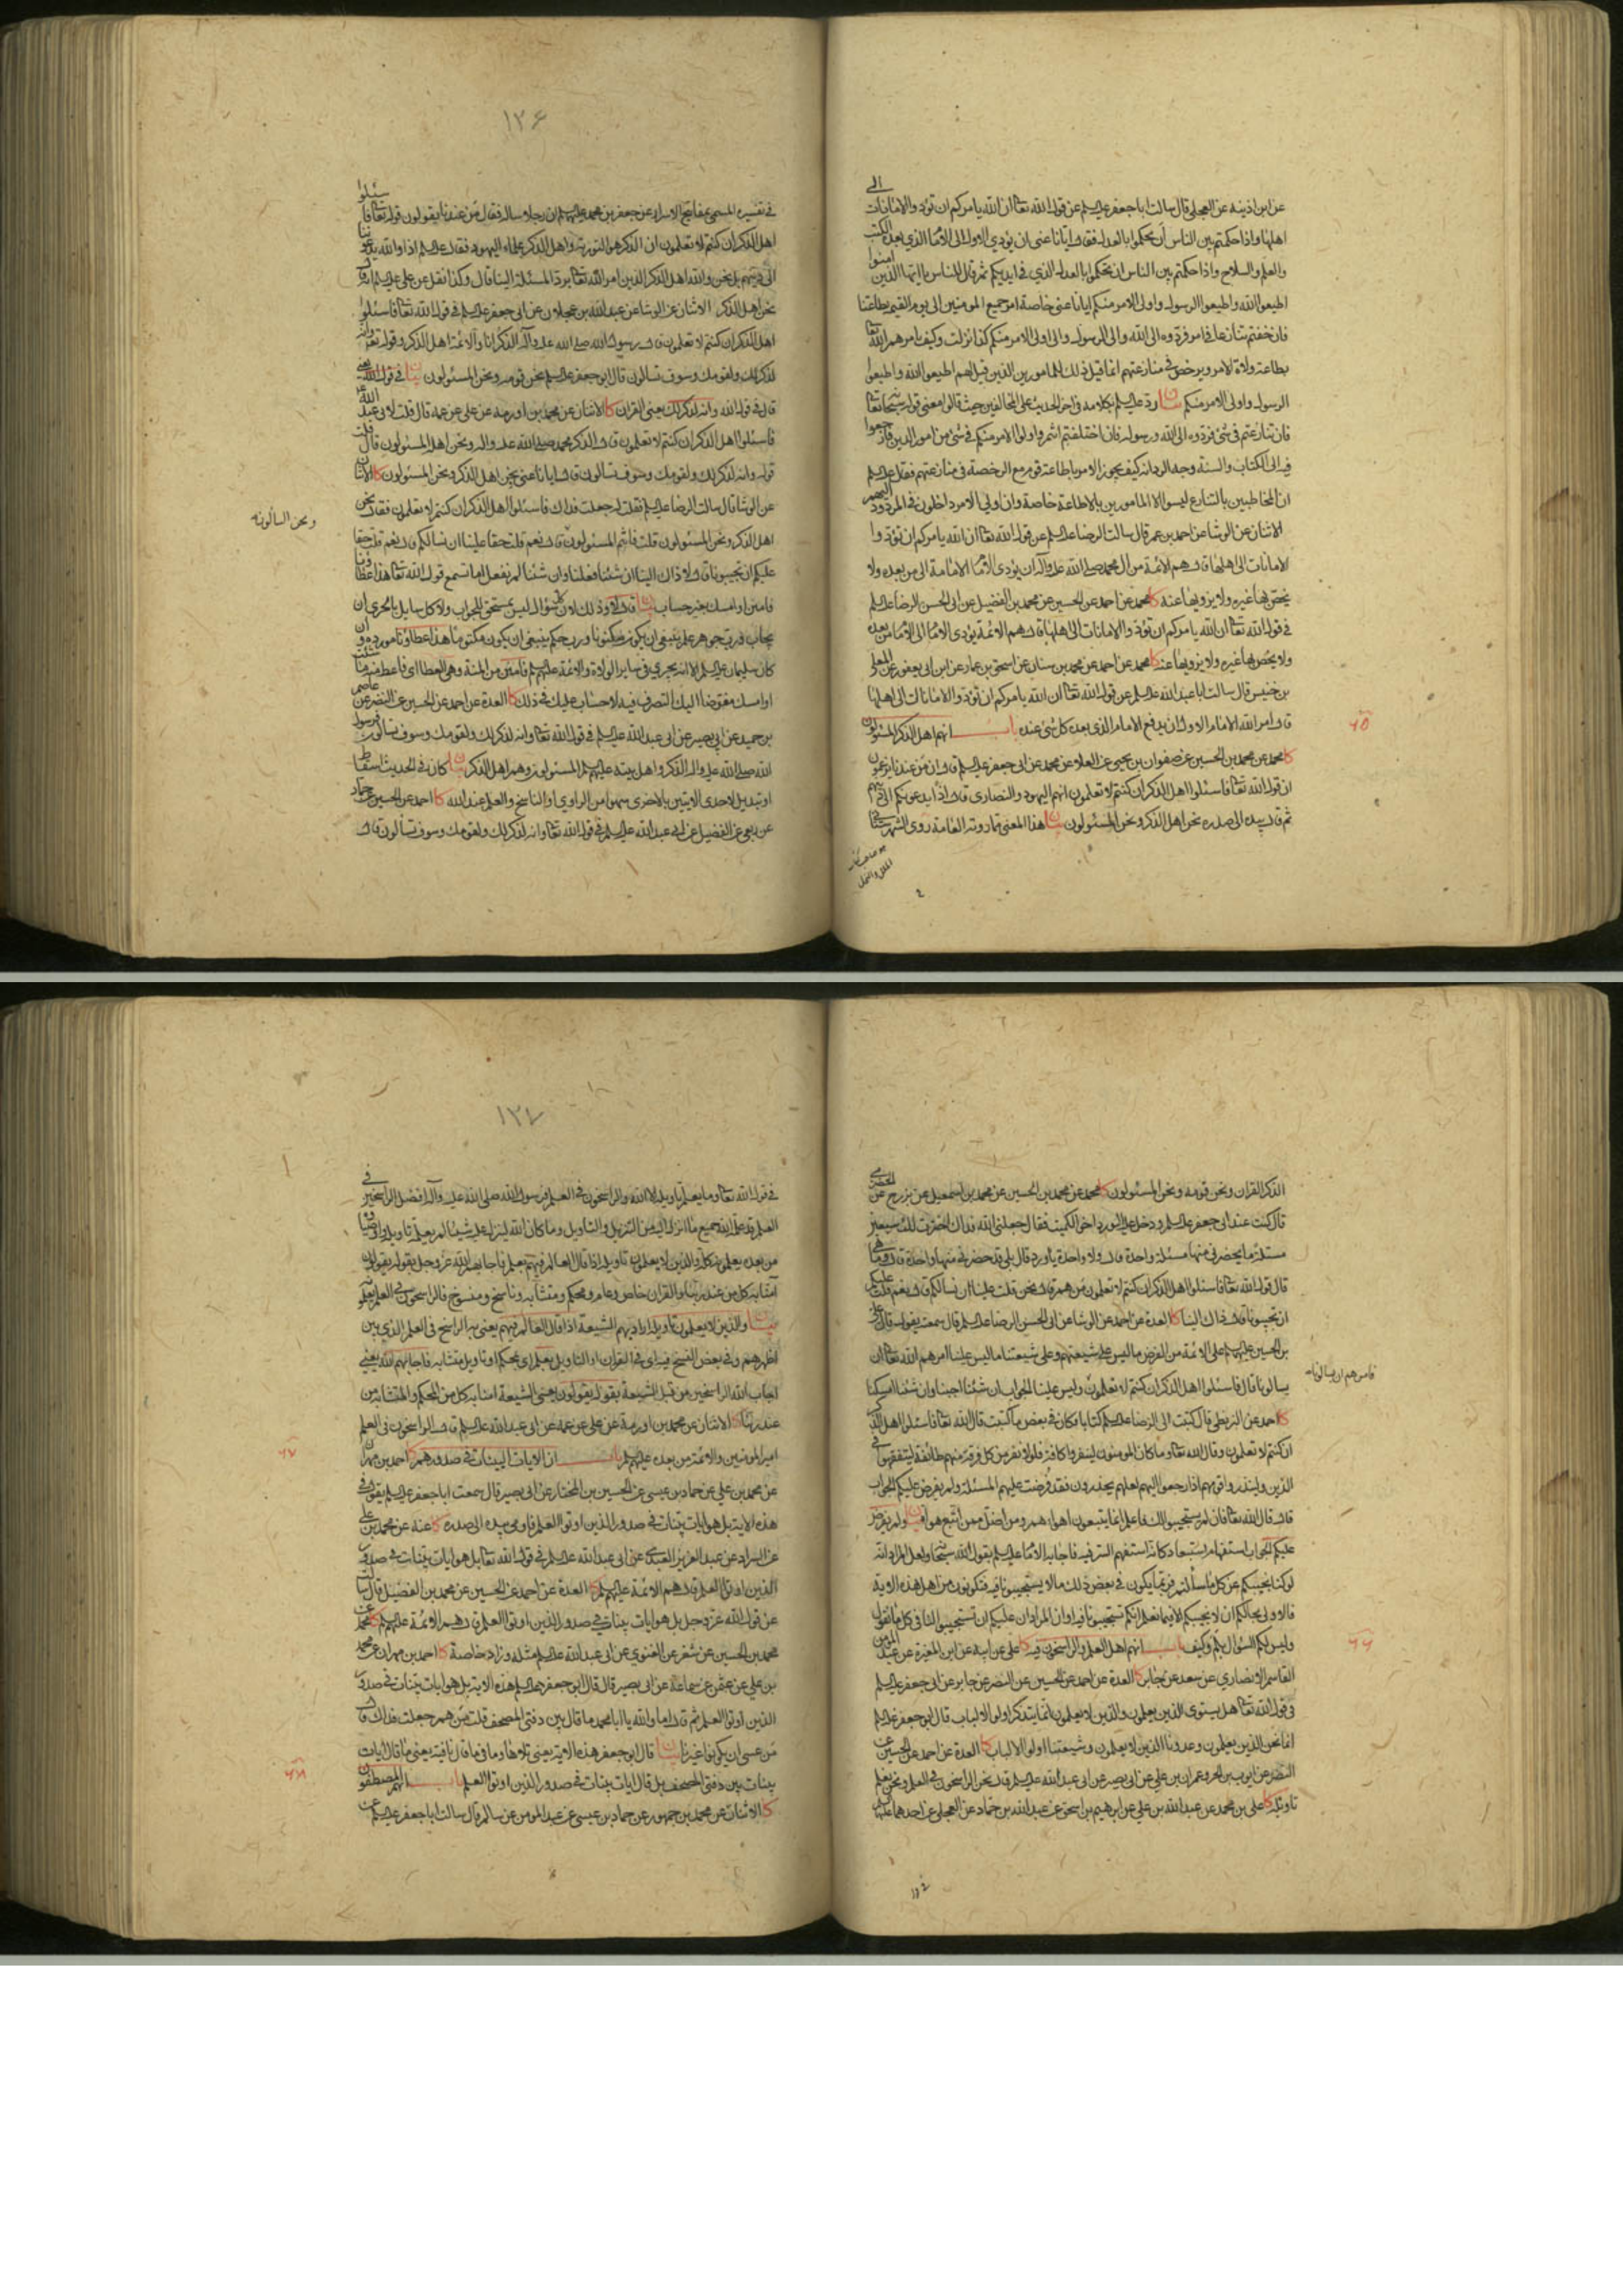 عن ابن اذينة عن العجلي قال سالت ابا جعفر عليه السلم عن قول الله تعالى ان الله يامركم ان تؤدوا الامانات الى
اهلها واذا حكمتم بين الناس ان تحكموا بالعدل فقال ايانا عنى ان يؤدي الاول الى الامام الذي بعده الكتب
والعلم والسلاح واذا حكمتم بين الناس ان تحكموا بالعدل الذي في ايديكم ثم قال للناس يا ايها الذين امنوا
اطيعوا الله واطيعوا الرسول واولي الامر منكم ايانا عنى خاصة امر جميع المؤمنين الى يوم القيمة بطاعتنا
فان خفتم تنازعا في امر فردوه الى الله والى الرسول والى اولي الامر منكم كذا نزلت وكيف يامرهم الله تعالى
بطاعة ولاة الامر ويرخص في منازعتهم انما قيل ذلك للمامورين الذين قيل لهم اطيعوا الله واطيعوا
الرسول واولي الامر منكم بيان رد عليه السلم بكلامه في اخر الحديث على المخالفين حيث قالوا معنى قوله سبحانه
فان تنازعتم في شئ فردوه الى الله ورسوله فان اختلفتم انتم واولوا الامر منكم في شئ من امور الدين فارجعوا
فيه الى الكتاب والسنة وجه الرد انه كيف يجوز الامر باطاعة قوم مع الرخصة في منازعتهم فقال عليه السلم
ان المخاطبين بالتنازع ليسوا الا المامورين بالاطاعة خاصة وان اولي الامر داخلون في المردود اليهم
الاثنان عن الوشا عن احمد بن عمر قال سالت الرضا عليه السلم عن قول الله تعالى ان الله يامركم ان تؤدوا
الامانات الى اهلها قال هم الائمة من ال محمد صلى الله عليه وآله ان يؤدي الامام الامامة الى من بعده ولا
يخص بها غيره ولا يزويها عنه كا محمد عن احمد عن الحسين عن محمد بن الفضيل عن ابي الحسن الرضا عليه السلم
في قول الله تعالى ان الله يامركم ان تؤدوا الامانات الى اهلها قال هم الائمة يؤدي الامام الى الامام من بعده
ولا يخص بها غيره ولا يزويها عنه كا محمد عن احمد عن محمد بن سنان عن اسحق بن عمار عن ابن ابي يعفور عن المعلى
بن خنيس قال سالت ابا عبد الله عليه السلم عن قول الله تعالى ان الله يامركم ان تؤدوا الامانات الى اهلها
قال امر الله الامام الاول ان يدفع الى الامام الذي بعده كل شئ عنده باب انهم اهل الذكر المسئولون
٦٥
كا محمد عن محمد بن الحسين عن صفوان بن يحيى عن العلاء عن محمد عن ابي جعفر عليه السلم قال ان من عندنا يزعمون
ان قول الله تعالى فاسئلوا اهل الذكر ان كنتم لا تعلمون انهم اليهود والنصارى قال اذا يدعونكم الى دينهم
ثم قال بيده الى صدره نحن اهل الذكر ونحن المسئولون بيان هذا المعنى مما روته العامة روى الشهرستاني
هو صاحب كتاب
الملل والنحل
١٣٦
في تفسيره المسمى بمفاتيح الاسرار عن جعفر بن محمد عليهما السلم ان رجلا ساله فقال من عندنا يقولون قوله تعالى فاسئلوا
اهل الذكر ان كنتم لا تعلمون ان الذكر هو التورية واهل الذكر علماء اليهود فقال عليه السلم اذا والله يدعوننا
الى دينهم بل نحن والله اهل الذكر الذين امر الله تعالى برد المسئلة الينا قال وكذا نقل عن علي عليه السلم انه قال
نحن اهل الذكر الاثنان عن الوشا عن عبد الله بن عجلان عن ابي جعفر عليه السلم في قول الله تعالى فاسئلوا
اهل الذكر ان كنتم لا تعلمون قال رسول الله صلى الله عليه وآله الذكر انا والائمة اهل الذكر وقوله تعالى وانه
لذكر لك ولقومك وسوف تسألون قال ابو جعفر عليه السلم نحن قومه ونحن المسئولون بيان في قول الله يعني
قال في قول الله وانه لذكر لك يعني القران كا الاثنان عن محمد بن اورمة عن علي عن عمه قال قلت لابي عبد الله
فاسئلوا اهل الذكر ان كنتم لا تعلمون قال الذكر محمد صلى الله عليه واله ونحن اهله المسئولون قال قلت
قوله وانه لذكر لك ولقومك وسوف تسألون قال ايانا عنى ونحن اهل الذكر ونحن المسئولون كا الاثنان
عن الوشا قال سالت الرضا عليه السلم فقلت له جعلت فداك فاسئلوا اهل الذكر ان كنتم لا تعلمون فقال نحن
ونحن السائلونه
اهل الذكر ونحن المسئولون قلت فانتم المسئولون قال نعم قلت حقا علينا ان نسالكم قال نعم قلت حقا
عليكم ان تجيبونا قال لا ذاك الينا ان شئنا فعلنا وان شئنا لم نفعل اما تسمع قول الله تعالى هذا عطاؤنا
فامنن او امسك بغير حساب بيان قال لا وذلك لان كل سؤال ليس بمستحق للجواب ولا كل سايل بالحري ان
يجاب فرب جوهر علم ينبغي ان يكون مكنونا ورب حكم ينبغي ان يكون مكتوما هذا عطاؤنا مورده وان
كان سليمان عليه السلم الا انه يجري في ساير الولاة والائمة عليهم السلم فامنن من المنة وهي العطا اي فاعط منه ما شئت
او امسك مفوضا اليك التصرف فيه لا حساب عليك في ذلك كا العدة عن احمد عن الحسين عن النضر عن عاصم
بن حميد عن ابي بصير عن ابي عبد الله عليه السلم في قول الله تعالى وانه لذكر لك ولقومك وسوف تسالون فرسول
الله صلى الله عليه واله الذكر واهل بيته عليهم السلم المسئولون وهم اهل الذكر بيان كان في الحديث اسقاطا
او تبديل لاحدى الايتين بالاخرى سهوا من الراوي او الناسخ والعلم عند الله كا احمد عن الحسين عن حماد
عن ربعي عن الفضيل عن ابي عبد الله عليه السلم في قول الله تعالى وانه لذكر لك ولقومك وسوف تسألون قال
الذكر القران ونحن قومه ونحن المسئولون كا محمد عن محمد بن الحسين عن محمد بن اسمعيل عن بزرج عن الحضرمي
قال كنت عند ابي جعفر عليه السلم ودخل عليه الورد اخو الكميت فقال جعلني الله فداك اخترت لك سبعين
مسئلة ما يحضرني منها مسئلة واحدة قال ولا واحدة يا ورد قال بلى قد حضرني منها واحدة قال وما هي
قال قول الله تعالى فاسئلوا اهل الذكر ان كنتم لا تعلمون من هم قال نحن قلت علينا ان نسالكم قال نعم قلت عليكم
ان تجيبونا قال ذاك الينا كا العدة عن احمد عن الوشا عن ابي الحسن الرضا عليه السلم قال سمعته يقول قال علي
بن الحسين عليهما السلم على الائمة من الفرض ما ليس على شيعتهم وعلى شيعتنا ما ليس علينا امرهم الله تعالى ان
فامرهم ان يسالونا
يسالونا قال فاسئلوا اهل الذكر ان كنتم لا تعلمون وليس علينا الجواب ان شئنا اجبنا وان شئنا امسكنا
كا احمد عن البزنطي قال كتبت الى الرضا عليه السلم كتابا فكان في بعض ما كتبت قال الله تعالى فاسئلوا اهل الذكر
ان كنتم لا تعلمون وقال الله تعالى وما كان المؤمنون لينفروا كافة فلولا نفر من كل فرقة منهم طائفة ليتفقهوا في
الدين ولينذروا قومهم اذا رجعوا اليهم لعلهم يحذرون فقد فرضت عليهم المسئلة ولم يفرض عليكم الجواب
قال قال الله تعالى فان لم يستجيبوا لك فاعلم انما يتبعون اهواءهم ومن اضل ممن اتبع هواه بيان ولم يفرض
عليكم الجواب استفهام استبعاد كانه استفهم السر فيه فاجابه الامام عليه السلم بقول الله سبحانه ولعل المراد انه
لو كنا نجيبكم عن كل ما سألتم فربما يكون في بعض ذلك ما لا يستجيبونا فيه فتكونون من اهل هذه الاية
فالاولى بحالكم ان لا نجيبكم الا فيما نعلم انكم تستجيبونا فيه او ان المراد ان عليكم ان تستجيبوا لنا في كل ما نقول
وليس لكم السؤال بلم وكيف باب انهم اهل العلم والراسخون فيه كا علي عن ابيه عن ابن المغيرة عن عبد المؤمن
٦٦
القاسم الانصاري عن سعد عن جابر كا العدة عن احمد عن الحسين عن النضر عن جابر عن ابي جعفر عليه السلم
في قول الله تعالى هل يستوي الذين يعلمون والذين لا يعلمون انما يتذكر اولوا الالباب قال ابو جعفر عليه السلم
انما نحن الذين يعلمون وعدونا الذين لا يعلمون وشيعتنا اولوا الالباب كا العدة عن احمد عن الحسين عن
النضر عن ايوب بن الحر وعمران بن علي عن ابي بصير عن ابي عبد الله عليه السلم قال نحن الراسخون في العلم ونحن نعلم
تاويله كا علي بن محمد عن عبد الله بن علي عن ابرهيم بن اسحق عن عبد الله بن حماد عن العجلي عن احدهما عليهما السلم
١٣٧
في قول الله تعالى وما يعلم تاويله الا الله والراسخون في العلم فرسول الله صلى الله عليه وآله افضل الراسخين في
العلم قد علمه الله جميع ما انزل اليه من التنزيل والتاويل وما كان الله لينزل عليه شيئا لم يعلمه تاويله واوصياؤه
من بعده يعلمونه كله والذين لا يعلمون تاويله اذا قال العالم فيهم بعلم فاجابهم الله عز وجل بقوله يقولون
آمنا به كل من عند ربنا والقران خاص وعام ومحكم ومتشابه وناسخ ومنسوخ فالراسخون في العلم يعلمونه
بيان والذين لا يعلمون تاويله اراد بهم الشيعة اذا قال العالم فيهم يعني به الراسخ في العلم الذي بين
اظهرهم وفي بعض النسخ فيه اي في القران او التاويل بعلم اي بمحكم او تاويل متشابه فاجابهم الله يعني
اجاب الله الراسخين من قبل الشيعة بقوله يقولون يعني الشيعة امنا به كل من المحكم والمتشابه من
عند ربنا كا الاثنان عن محمد بن اورمة عن علي عن عمه عن ابي عبد الله عليه السلم قال الراسخون في العلم
امير المؤمنين والائمة من بعده عليهم السلم باب ان الايات البينات في صدورهم كا احمد بن مهران
٦٧
عن محمد بن علي عن حماد بن عيسى عن الحسين بن المختار عن ابي بصير قال سمعت ابا جعفر عليه السلم يقول في
هذه الاية بل هو ايات بينات في صدور الذين اوتوا العلم فاومى بيده الى صدره كا عنه عن محمد بن علي
عن السراد عن عبد العزيز العبدي عن ابي عبد الله عليه السلم في قول الله تعالى بل هو ايات بينات في صدور
الذين اوتوا العلم قال هم الائمة عليهم السلم كا العدة عن احمد عن الحسين عن محمد بن الفضيل قال سالته
عن قول الله عز وجل بل هو ايات بينات في صدور الذين اوتوا العلم قال هم الائمة عليهم السلم كا محمد عن
محمد بن الحسين عن شعر عن الغنوي عن ابي عبد الله عليه السلم مثله وزاد خاصة كا احمد بن مهران عن محمد
بن علي عن عثمن عن سماعة عن ابي بصير قال قال ابو جعفر عليه السلم هذه الاية بل هو ايات بينات في صدور
الذين اوتوا العلم ثم قال اما والله يا ابا محمد ما قال بين دفتي المصحف قلت من هم جعلت فداك قال
من عسى ان يكونوا غيرنا بيان قال ابو جعفر هذه الاية يعني تلاها وما في ما قال نافية يعني ما قال ايات
بينات بين دفتي المصحف بل قال ايات بينات في صدور الذين اوتوا العلم باب انهم المصطفون
٦٨
كا الاثنان عن محمد بن جمهور عن حماد بن عيسى عن عبد المؤمن عن سالم قال سالت ابا جعفر عليه السلم عن